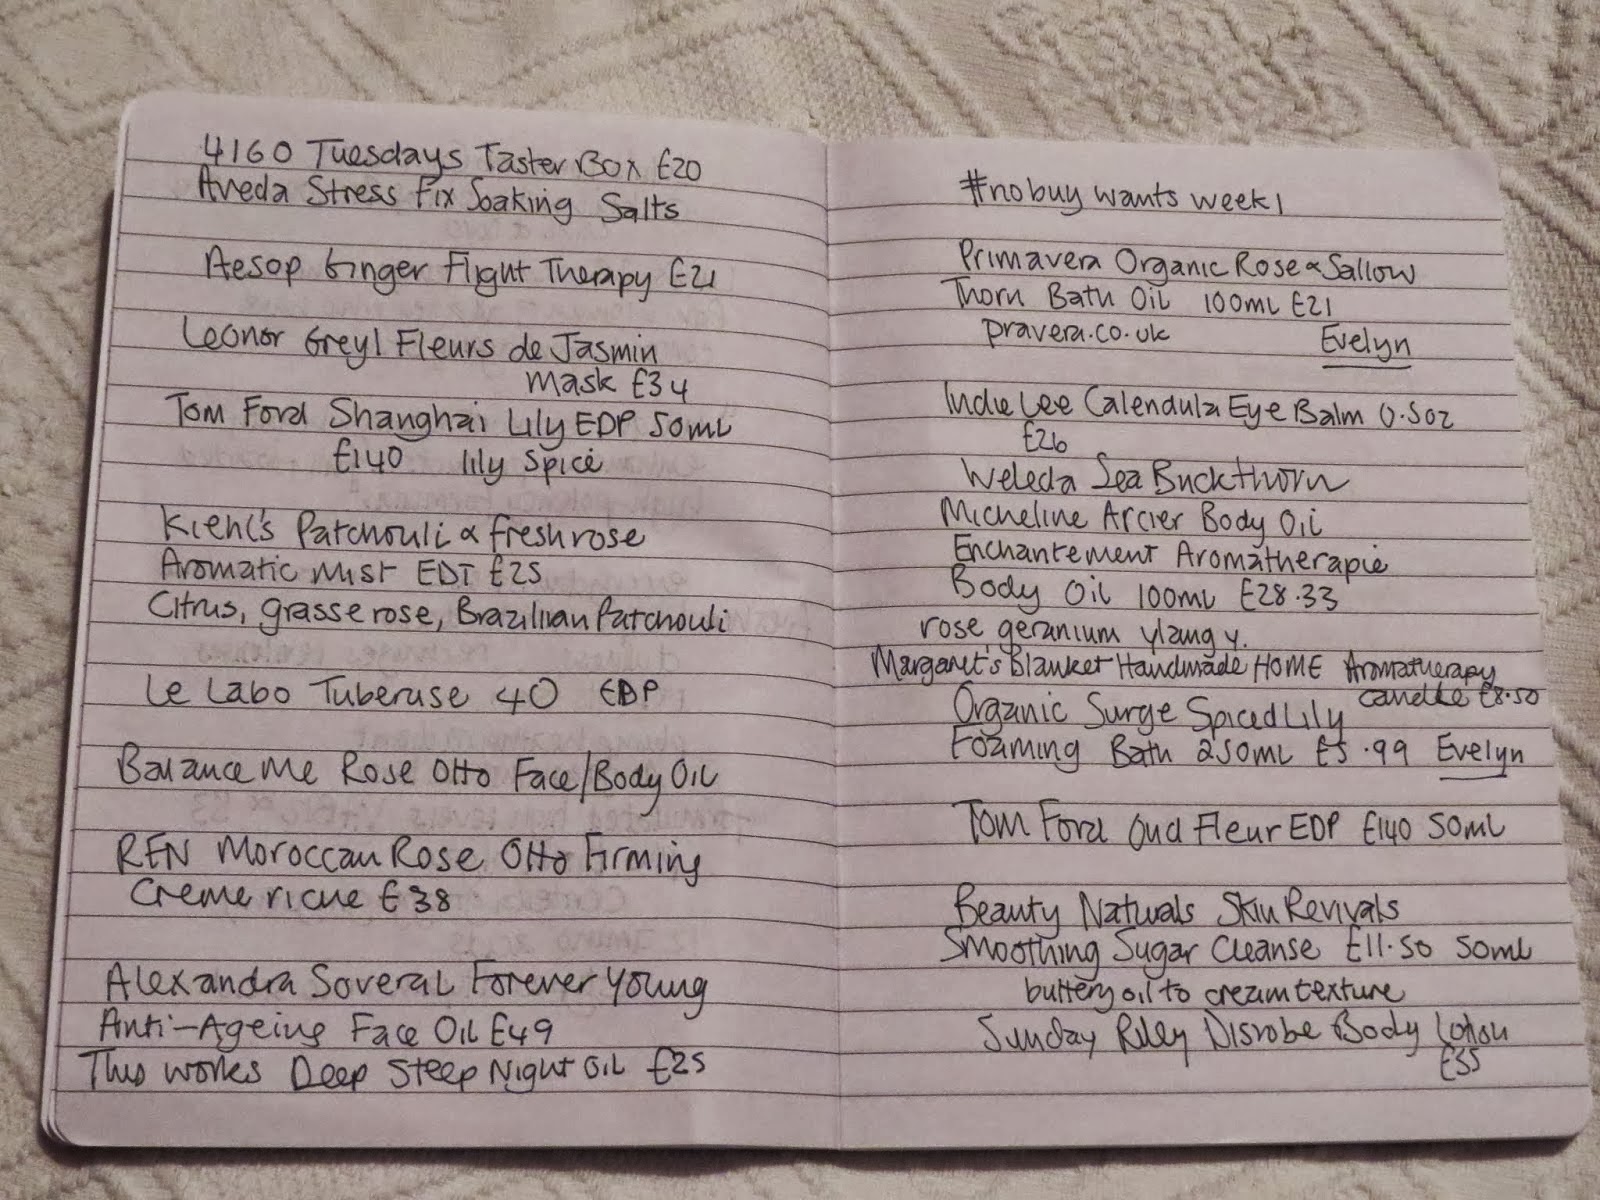 4160 Tuesdays Taster Box £20
Aveda Stress Fix Soaking Salts
Aesop Ginger Flight Therapy £21
Leonor Greyl Fleurs de Jasmin
mask £34
Tom Ford Shanghai Lily EDP 50ml
£140 lily spice
Kiehl's Patchouli & fresh rose
Aromatic mist EDT £25
Citrus, grasse rose, Brazilian Patchouli
Le Labo Tuberuse 40 EDP
Balance Me Rose Otto Face/Body Oil
REN Moroccan Rose Otto Firming
Creme riche £38
Alexandra Soveral Forever Young
Anti-Ageing Face Oil £49
This works Deep Sleep Night Oil £25
#nobuy wants week 1
Primavera Organic Rose & Sallow
Thorn Bath Oil 100ml £21
pravera.co.uk Evelyn
Indie Lee Calendula Eye Balm 0.5oz
£26
Weleda Sea Buckthorn
Micheline Arcier Body Oil
Enchantement Aromatherapie
Body Oil 100ml £28.33
rose geranium ylang y.
Margaret's Blanket Handmade HOME Aromatherapy
candle £8.50
Organic Surge Spiced Lily
Foaming Bath 250ml £5.99 Evelyn
Tom Ford Oud Fleur EDP £140 50ml
Beauty Naturals Skin Revivals
Smoothing Sugar Cleanse £11.50 50ml
buttery oil to cream texture
Sunday Riley Disrobe Body Lotion
£35